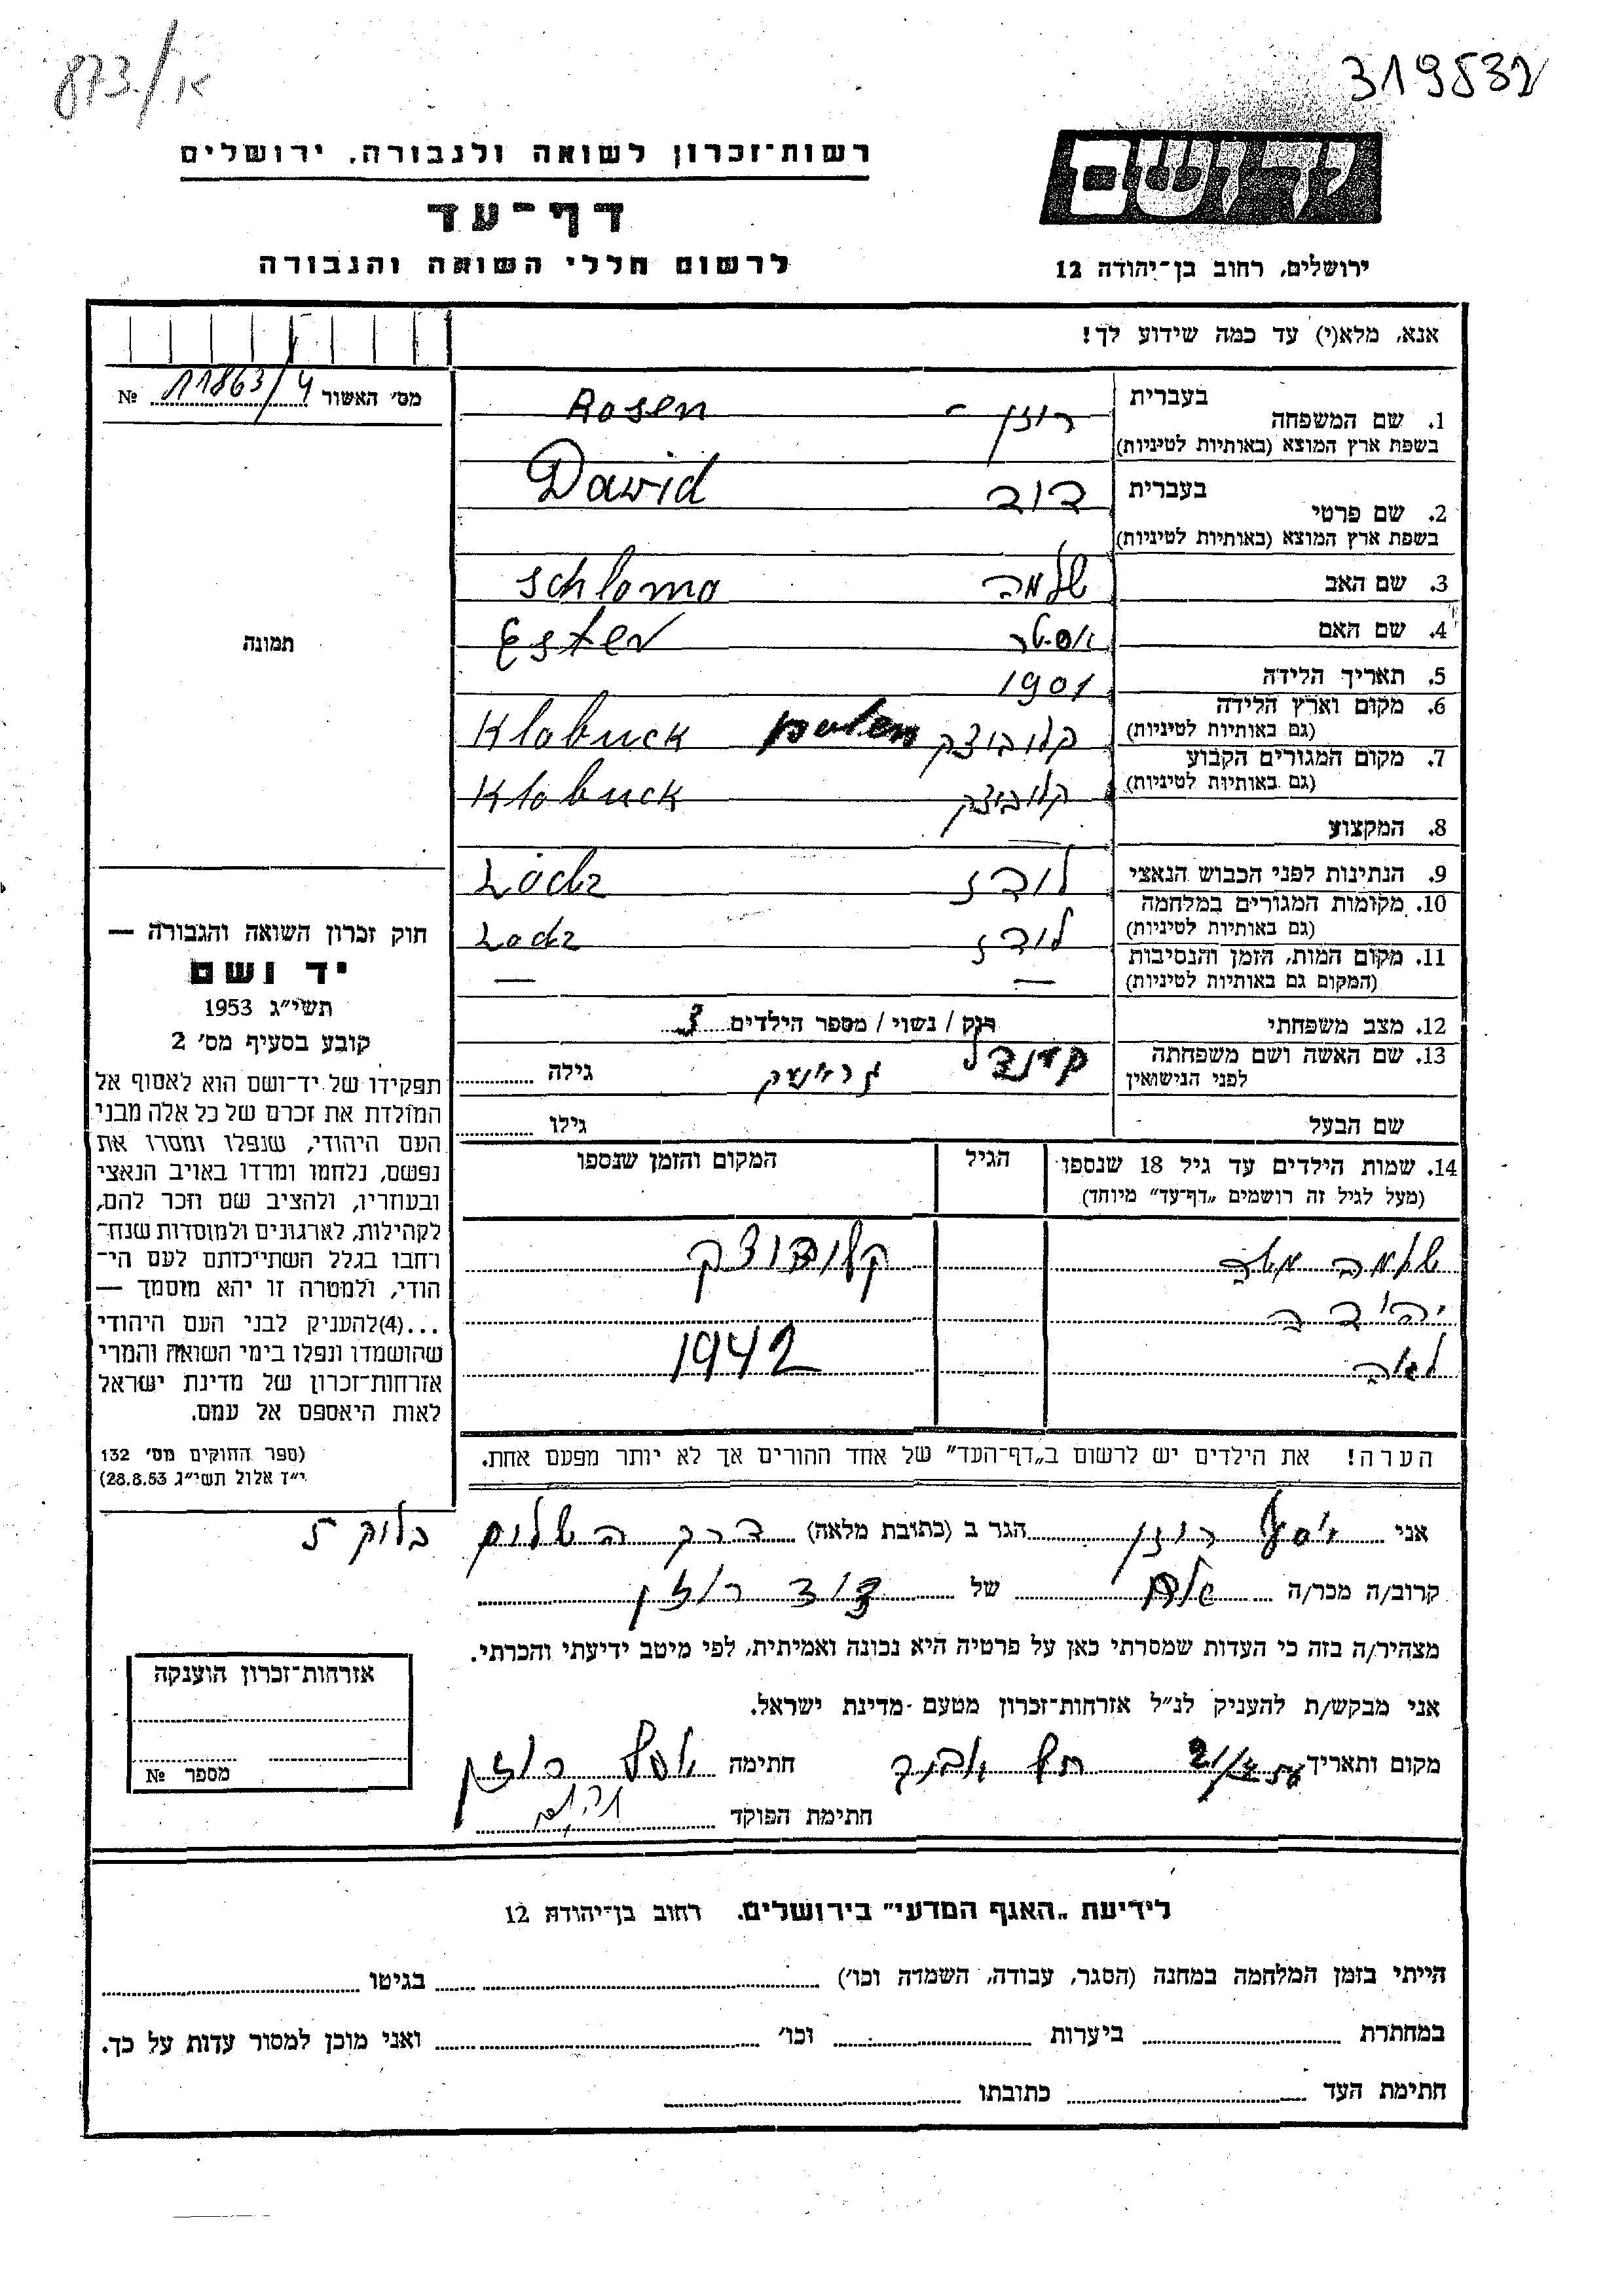 873/א
319532
רשות־זכרון לשואה ולגבורה, ירושלים
דף־עד
לרשום חללי השואה והגבורה
יד ושם
ירושלים, רחוב בן־יהודה 12
אנא, מלא(י) עד כמה שידוע לך!
מס׳ האשור 11863/4 №
1. שם המשפחה בעברית רוזן - Rosen
בשפת ארץ המוצא (באותיות לטיניות)
2. שם פרטי בעברית דוד Dawid
בשפת ארץ המוצא (באותיות לטיניות)
3. שם האב שלמה Schlomo
4. שם האם אסטר Ester
5. תאריך הלידה 1901
6. מקום וארץ הלידה קלובוצק polen Klobuck
(גם באותיות לטיניות)
7. מקום המגורים הקבוע קלובוצק Klobuck
(גם באותיות לטיניות)
8. המקצוע
9. הנתינות לפני הכבוש הנאצי לודז Lodz
10. מקומות המגורים במלחמה לודז Lodz
(גם באותיות לטיניות)
11. מקום המות, הזמן והנסיבות — —
(המקום גם באותיות לטיניות)
12. מצב משפחתי רוק / נשוי / מספר הילדים 3
13. שם האשה ושם משפחתה קינדל גילה
לפני הנישואין
שם הבעל גילו
14. שמות הילדים עד גיל 18 שנספו הגיל המקום והזמן שנספו
(מעל לגיל זה רושמים „דף־עד״ מיוחד)
שלמה קלובוצק
יהודה
לאה 1942
הערה! את הילדים יש לרשום ב„דף־העד״ של אחד ההורים אך לא יותר מפעם אחת.
תמונה
חוק זכרון השואה והגבורה —
יד ושם
תשי״ג 1953
קובע בסעיף מס׳ 2
תפקידו של יד־ושם הוא לאסוף אל
המולדת את זכרם של כל אלה מבני
העם היהודי, שנפלו ומסרו את
נפשם, נלחמו ומרדו באויב הנאצי
ובעוזריו, ולהציב שם וזכר להם,
לקהילות, לארגונים ולמוסדות שנח־
רחבו בגלל השתייכותם לעם הי־
הודי, ולמטרה זו יהא מוסמך —
...(4)להעניק לבני העם היהודי
שהושמדו ונפלו בימי השואה והמרי
אזרחות־זכרון של מדינת ישראל
לאות היאספם אל עמם.
(ספר החוקים מס׳ 132
י״ד אלול תשי״ג 28.8.53)
אני יוסף רוזן הגר ב (כתובת מלאה) דרך השלום בלוק 5
קרוב/ה מכר/ה של דוד רוזן
מצהיר/ה בזה כי העדות שמסרתי כאן על פרטיה היא נכונה ואמיתית, לפי מיטב ידיעתי והכרתי.
אני מבקש/ת להעניק לנ״ל אזרחות־זכרון מטעם מדינת ישראל.
מקום ותאריך תל אביב חתימה יוסף רוזן
חתימת הפוקד
אזרחות־זכרון הוענקה
מספר №
לידיעת „האגף המדעי״ בירושלים. רחוב בן־יהודה 12
הייתי בזמן המלחמה במחנה (הסגר, עבודה, השמדה וכו׳) בגיטו
במחתרת ביערות וכו׳ ואני מוכן למסור עדות על כך.
חתימת העד כתובתו